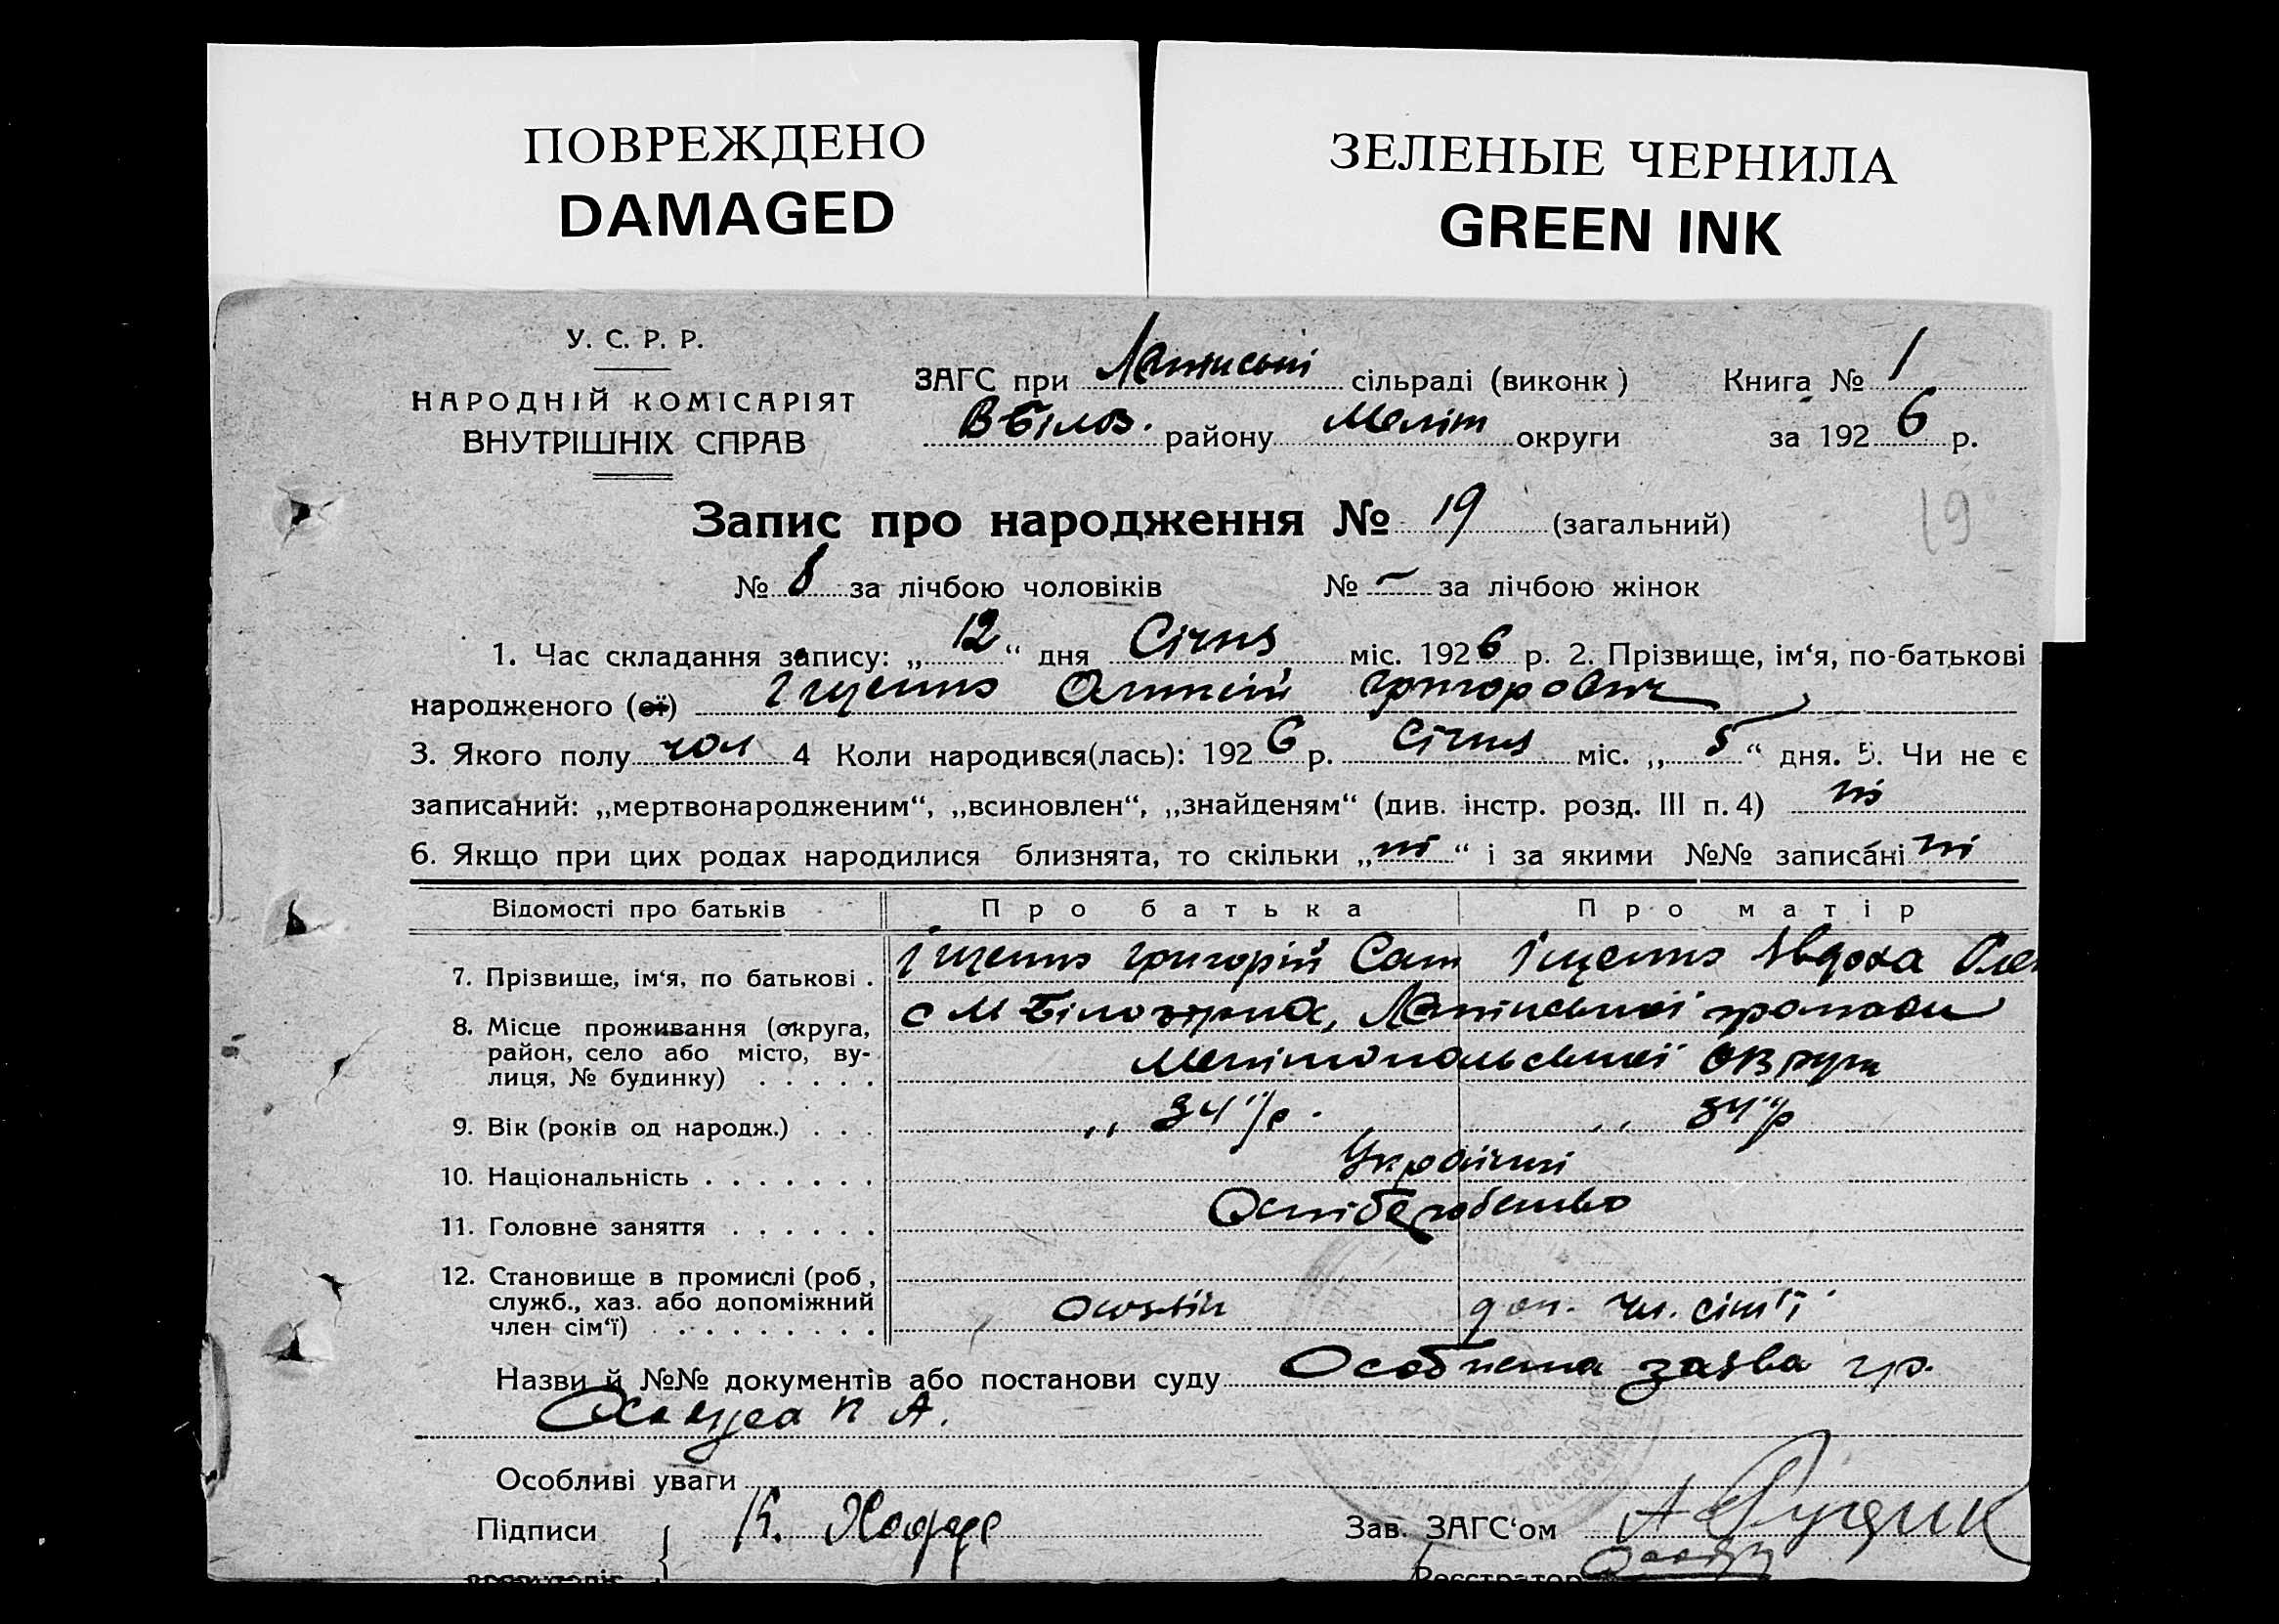 ПОВРЕЖДЕНО
DAMAGED
ЗЕЛЕНЫЕ ЧЕРНИЛА
GREEN INK
У. С. Р. Р.
НАРОДНІЙ КОМІСАРІЯТ
ВНУТРІШНІХ СПРАВ
ЗАГС при сільраді (виконк) Книга № 1
В Білоз. району Меліт округи за 1926 р.
Запис про народження № 19 (загальний)
19
№ 8 за лічбою чоловіків № — за лічбою жінок
1. Час складання запису: „12“ дня Січня міс. 1926 р. 2. Прізвище, ім‘я, по-батькові
народженого (ої) Іщенко Олексій Григорович
3. Якого полу чол 4 Коли народився(лась): 1926 р. Січня міс. „5“ дня. 5. Чи не є
записаний: „мертвонародженим“, „всиновлен“, „знайденям“ (див. інстр. розд. III п. 4) ні
6. Якщо при цих родах народилися близнята, то скільки „ні“ і за якими №№ записані ні
Відомості про батьків Про батька Про матір
7. Прізвище, ім‘я, по батькові . Іщенко Григорій Сам Іщенко Явдоха Олек
8. Місце проживання (округа, с М Білозірка, громади
район, село або місто, ву- Мелітопольської Округи
лиця, № будинку) . . . . .
9. Вік (років од народж.) . . . „ 34 р. „ 34 р
10. Національність . . . . . . . Українці
11. Головне заняття . . . . . . Хліборобство
12. Становище в промислі (роб,
служб., хаз. або допоміжний хазяїн доп. чл. сім'ї
член сім‘ї) . . . . . . . . .
Назви й №№ документів або постанови суду Особиста заява гр.
А.
Особливі уваги
Підписи К. Зав. ЗАГС‘ом А
Реєстратор